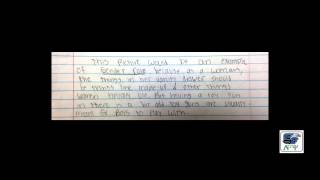 This Picture would be an example
of Gender Role because as a woman,
the things in her vanity drawer should
be things like make-up & other things
women typically use. But having a toy gun
in there is a bit odd toy guns are usually
meant for Boys to play with.